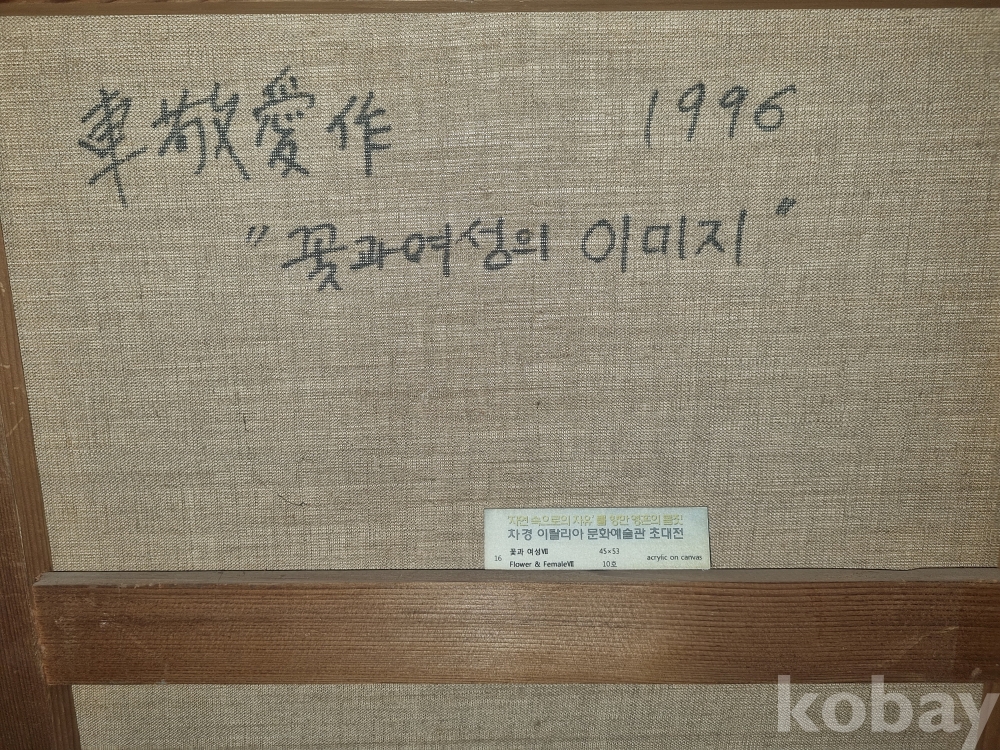 車敬愛作 1996
"꽃과여성의 이미지"
'자연 속으로의 자유'를 향한 영혼의 몸짓
차경 이탈리아 문화예술관 초대전
꽃과 여성Ⅶ 45×53
16 Flower & FemaleⅦ 10호 acrylic on canvas
kobay